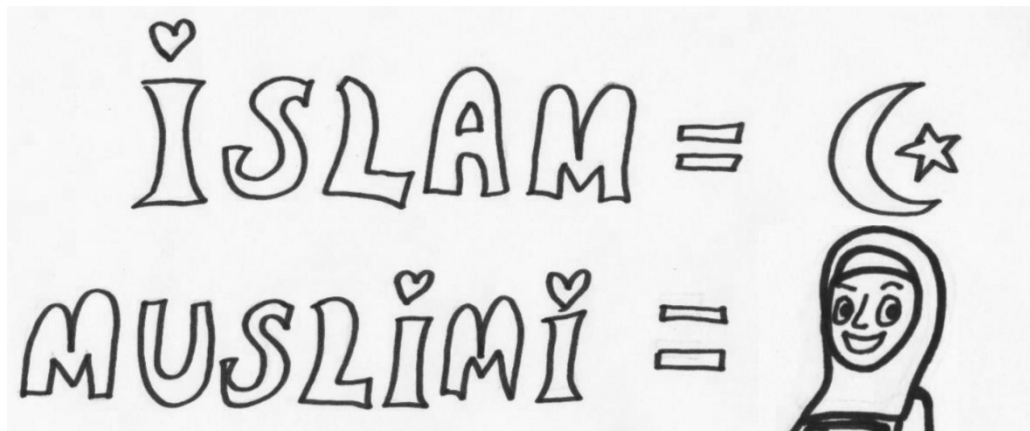 İSLAM =
MUSLiMi =